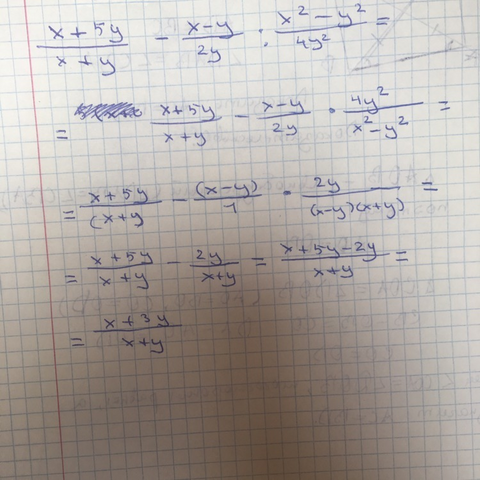 x + 5y / x + y − x − y / 2y : x² − y² / 4y² =
= x + 5y / x + y − x − y / 2y · 4y² / x² − y² =
= x + 5y / (x + y − (x − y) / 1 · 2y / (x − y)(x + y) =
= x + 5y / x + y − 2y / x + y = x + 5y − 2y / x + y =
= x + 3y / x + y